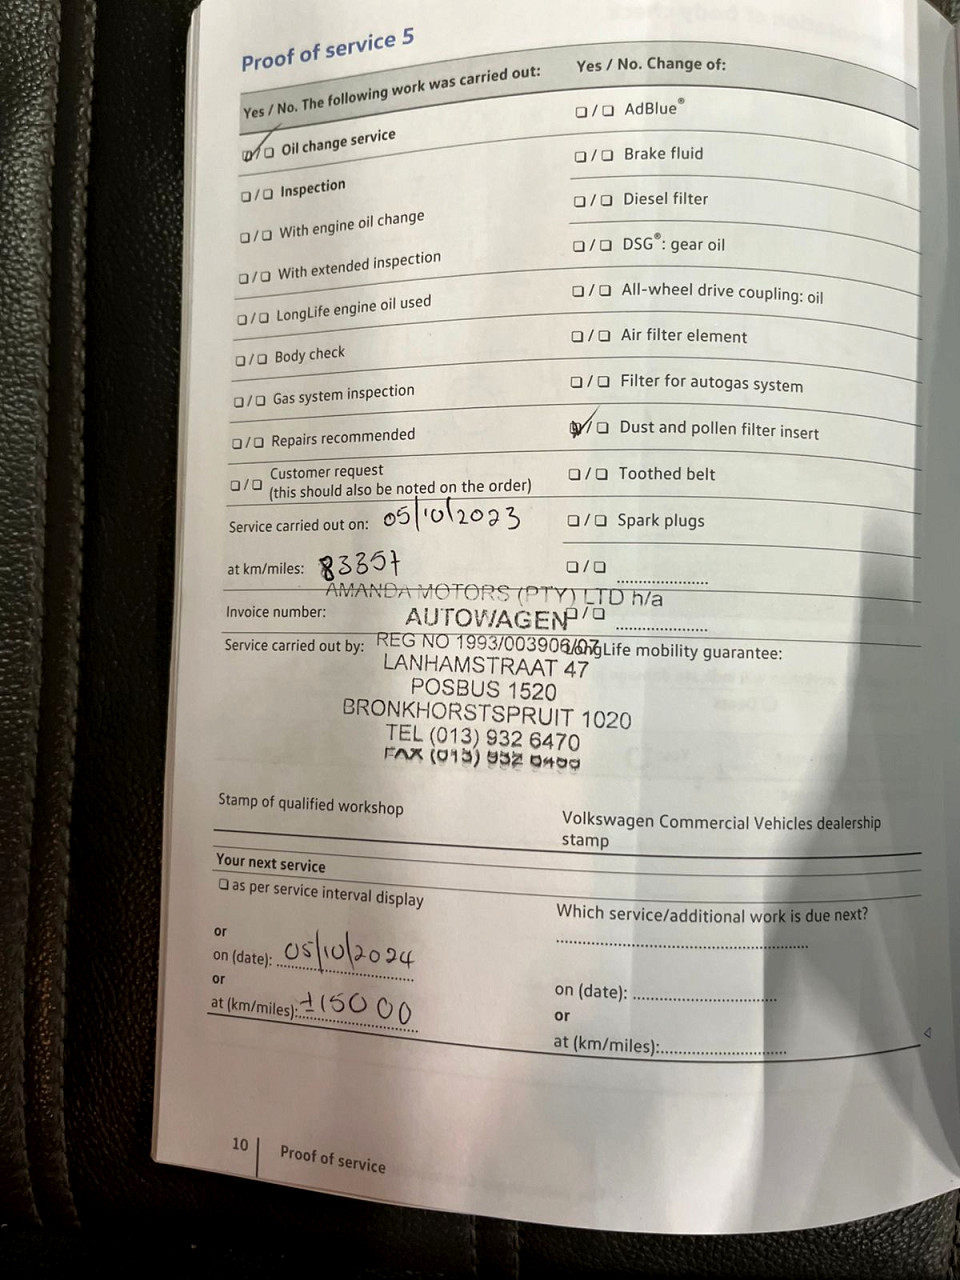 Proof of service 5
Yes / No. The following work was carried out:
Oil change service
Inspection
With engine oil change
With extended inspection
LongLife engine oil used
Body check
Gas system inspection
Repairs recommended
Customer request
(this should also be noted on the order)
Service carried out on: 05/10/2023
at km/miles: 83357
Invoice number:
Service carried out by:
Yes / No. Change of:
AdBlue®
Brake fluid
Diesel filter
DSG®: gear oil
All-wheel drive coupling: oil
Air filter element
Filter for autogas system
Dust and pollen filter insert
Toothed belt
Spark plugs
LongLife mobility guarantee:
AMANDA MOTORS (PTY) LTD h/a
AUTOWAGEN
REG NO 1993/003906/07
LANHAMSTRAAT 47
POSBUS 1520
BRONKHORSTSPRUIT 1020
TEL (013) 932 6470
FAX (013) 932
Stamp of qualified workshop
Volkswagen Commercial Vehicles dealership
stamp
Your next service
as per service interval display
or
on (date): 05/10/2024
or
at (km/miles): ±15000
Which service/additional work is due next?
on (date):
or
at (km/miles):
10 | Proof of service